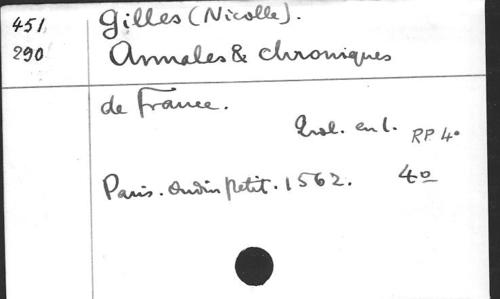 451. Gilles (Nicolle).
290 Annales & chroniques
de France.
2 vol. en 1. RP. 4°
Paris. Oudin Petit. 1562. 4°